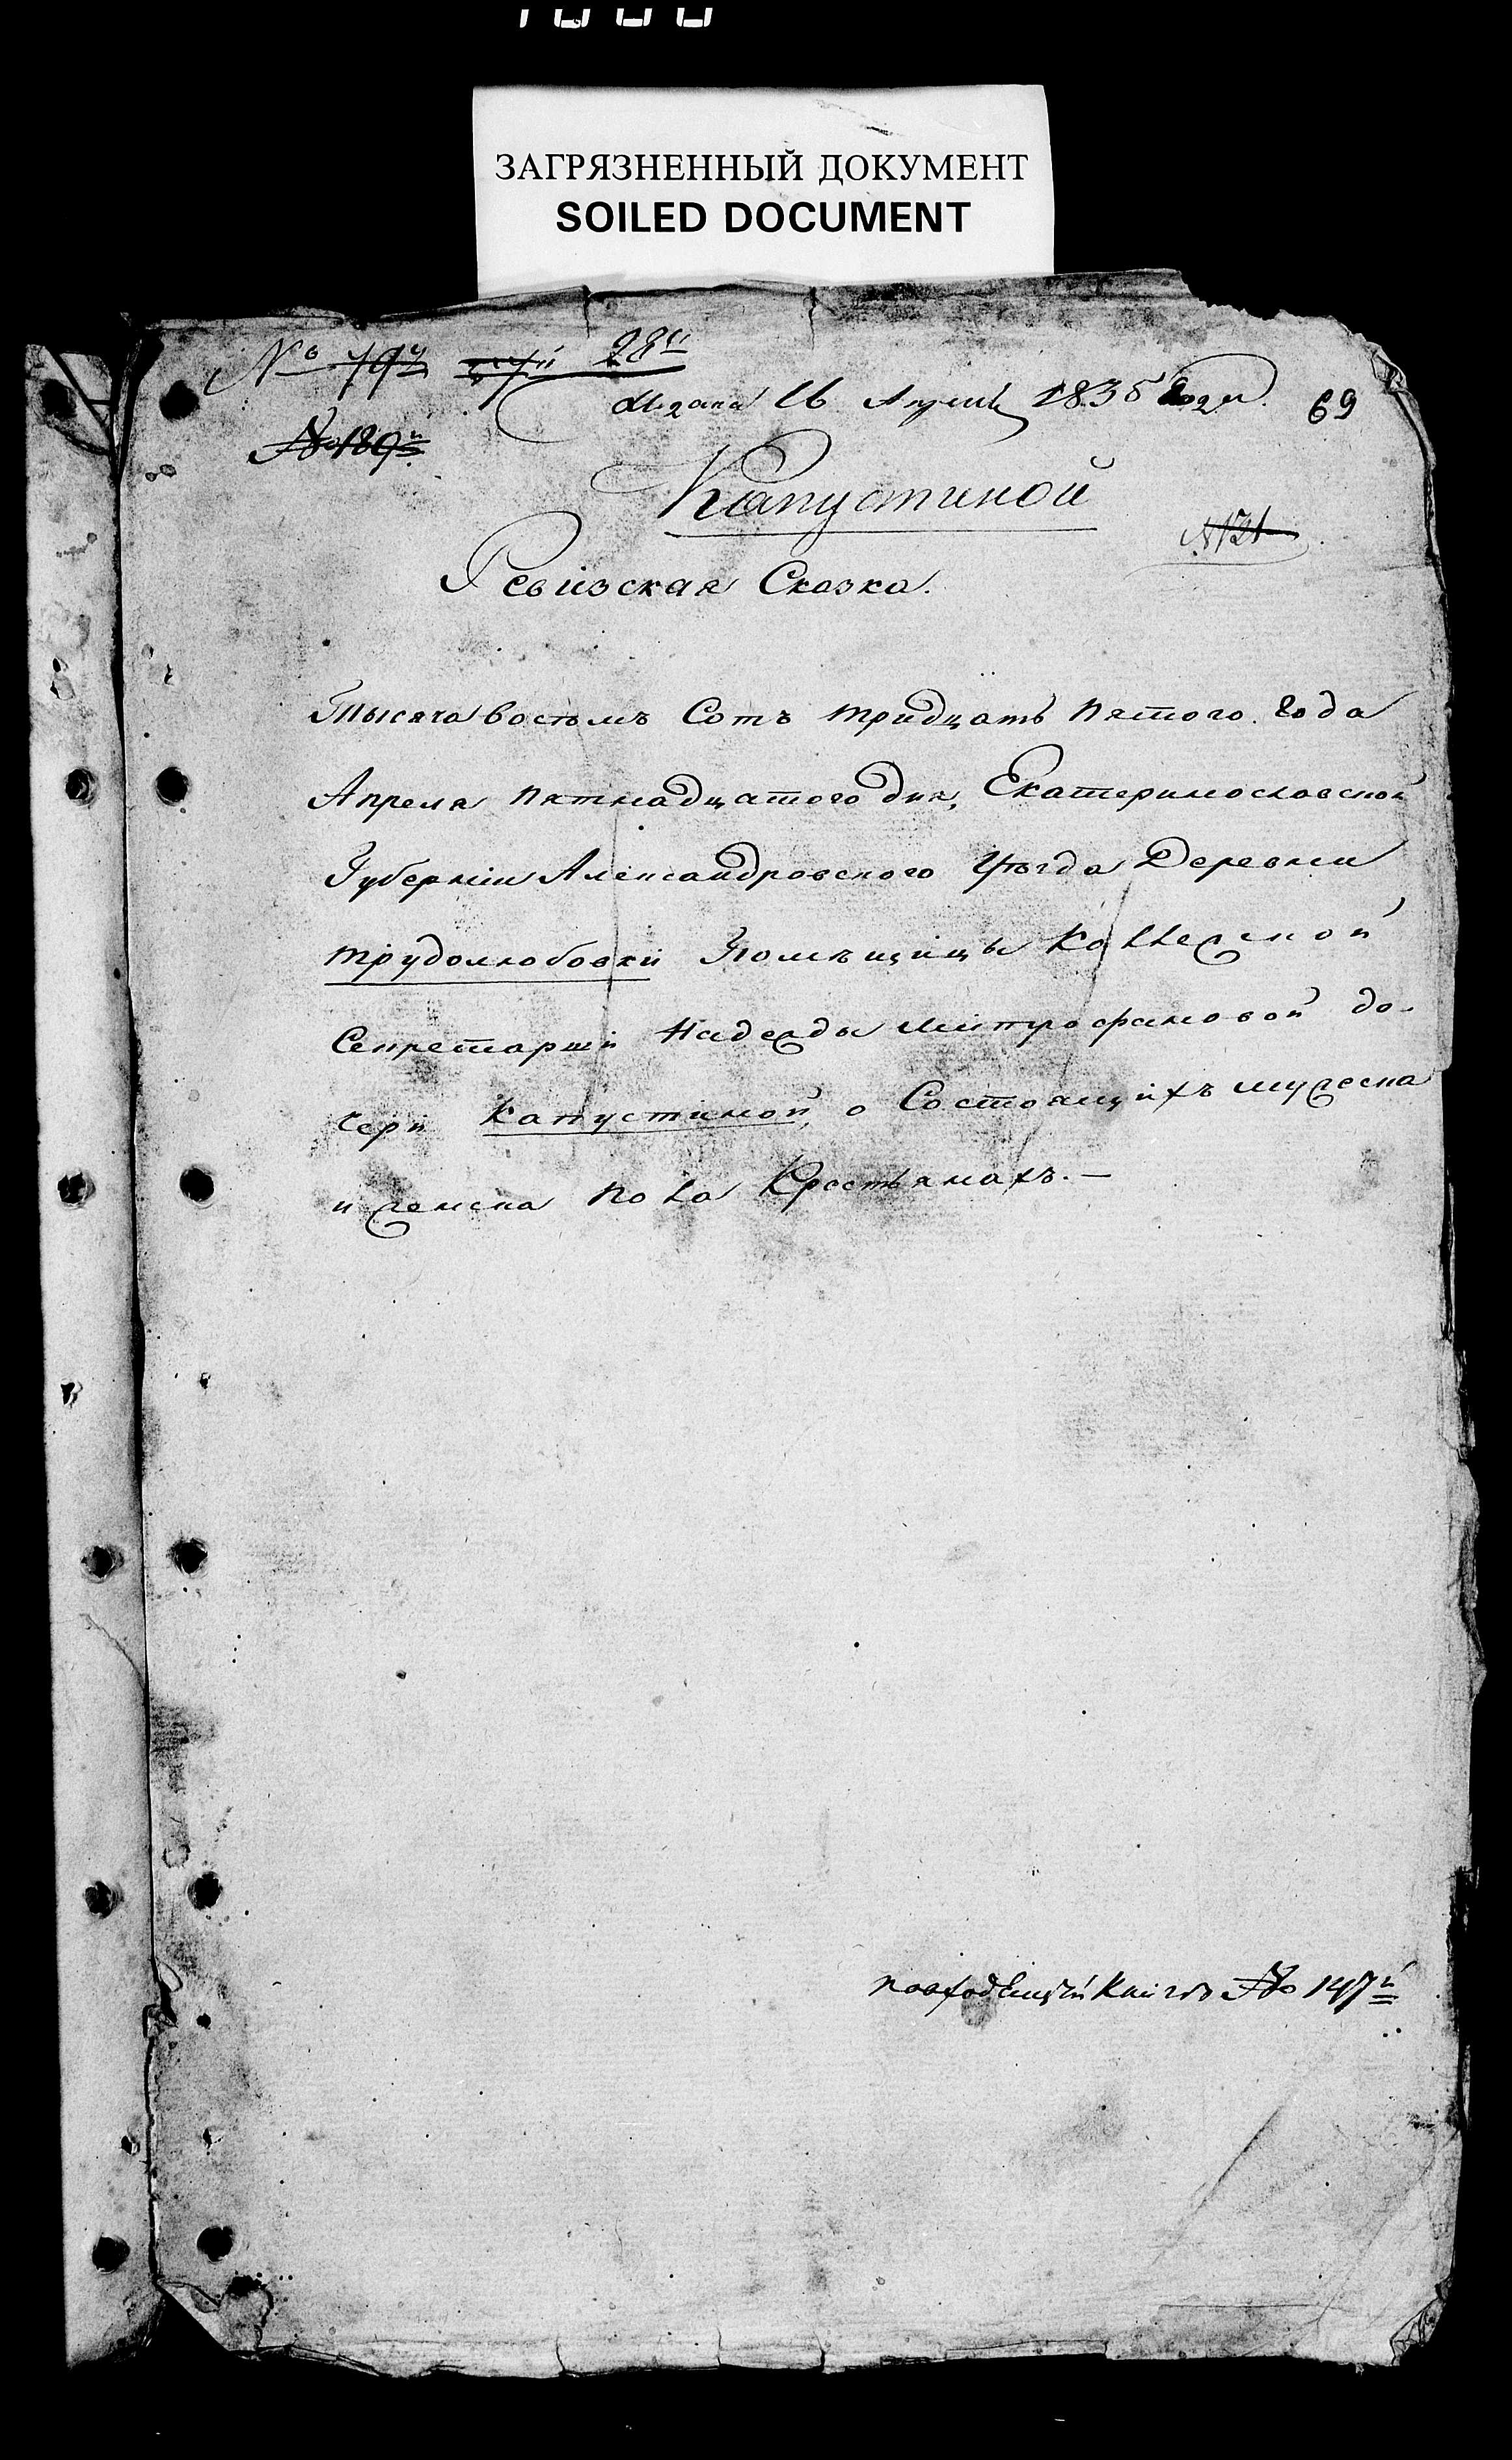 ЗАГРЯЗНЕННЫЙ ДОКУМЕНТ
SOILED DOCUMENT
№ 19й 28й
Подана 16 Апреля 1835 года
69
№ 189й
Капустиной
№ 131
Ревизская Сказка.
Тысяча восемь Сотъ тридцать пятого года
Апреля пятнадцатого дня, Екатеринославской
Губерніи Александровского Уѣзда Деревни
трудолюбовки Помѣщицы Коллежской
Секретарши Надежды Митрофановой до-
чери Капустиной, о Состоящихъ мужеска
и женска пола Крестьянахъ.—
по входящей Книгѣ № 147й